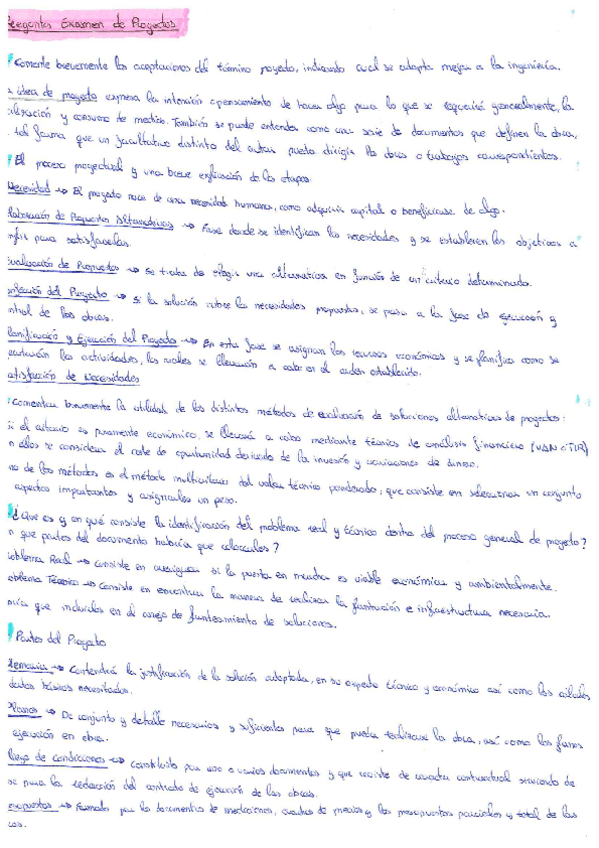 Preguntas Examen de Proyectos
Comente brevemente las acepciones del término proyecto, indicando cual se adapta mejor a la ingeniería.
idea de proyecto expresa la intención o pensamiento de hacer algo para lo que se requerirá generalmente, la
y consumo de medios. También se puede entender como una serie de documentos que definen la obra,
tal forma que un facultativo distinto del autor pueda dirigir las obras o trabajos correspondientes.
El proceso proyectual y una breve explicación de las etapas.
Necesidad → El proyecto nace de una necesidad humana, como adquirir capital o beneficiarse de algo.
Elaboración de Propuestas Alternativas → Fase donde se identifican las necesidades y se establecen los objetivos a
para satisfacerlas.
Evaluación de Propuestas → Se trata de elegir una alternativa en función de un criterio determinado.
del Proyecto → Si la solución cubre las necesidades propuestas, se pasa a la fase de ejecución y
control de las obras.
Planificación y Ejecución del Proyecto → En esta fase se asignan los recursos económicos y se planifica como se
las actividades, las cuales se llevarán a cabo en el orden establecido.
Satisfacción de Necesidades
Comentar brevemente la utilidad de los distintos métodos de evaluación de soluciones alternativas de proyectos:
Si el criterio es puramente económico, se llevará a cabo mediante técnicas de análisis financiero (VAN o TIR)
n ellos se considera el coste de oportunidad derivado de la inversión y variaciones de dinero.
no de los métodos es el método multicriterio del valor técnico ponderado, que consiste en seleccionar un conjunto
aspectos importantes y asignarles un peso.
¿Que es y en qué consiste la identificación del problema real y técnico dentro del proceso general de proyecto?
n que partes del documento habría que colocarlos?
Problema Real → Consiste en averiguar si la puesta en marcha es viable económica y ambientalmente.
Problema Técnico → Consiste en encontrar la manera de realizar la plantación e infraestructura necesaria.
que incluirlos en el anejo de planteamiento de soluciones.
Partes del Proyecto
Memoria → Contendrá la justificación de la solución adoptada, en su aspecto técnico y económico así como los cálculos
datos básicos necesitados.
Planos → De conjunto y detalle necesarios y suficientes para que pueda realizarse la obra, así como las fases
ejecución en obra.
Pliego de condiciones → Constituido por uno o varios documentos y que reviste de carácter contractual sirviendo de
se para la redacción del contrato de ejecución de las obras.
Presupuestos → Formado por los documentos de mediciones, cuadros de precios y los presupuestos parciales y total de las